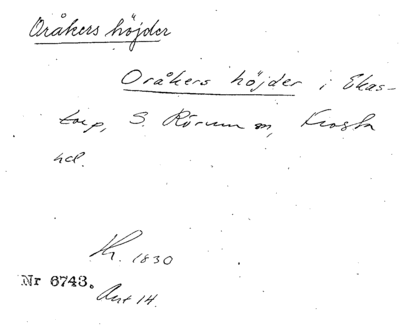 Oråkers höjder
Oråkers höjder i Ekas-
torp, S. Rörum sn, Frosta
hd.
Kr. 1830
Nr 6743.
Avt 14.